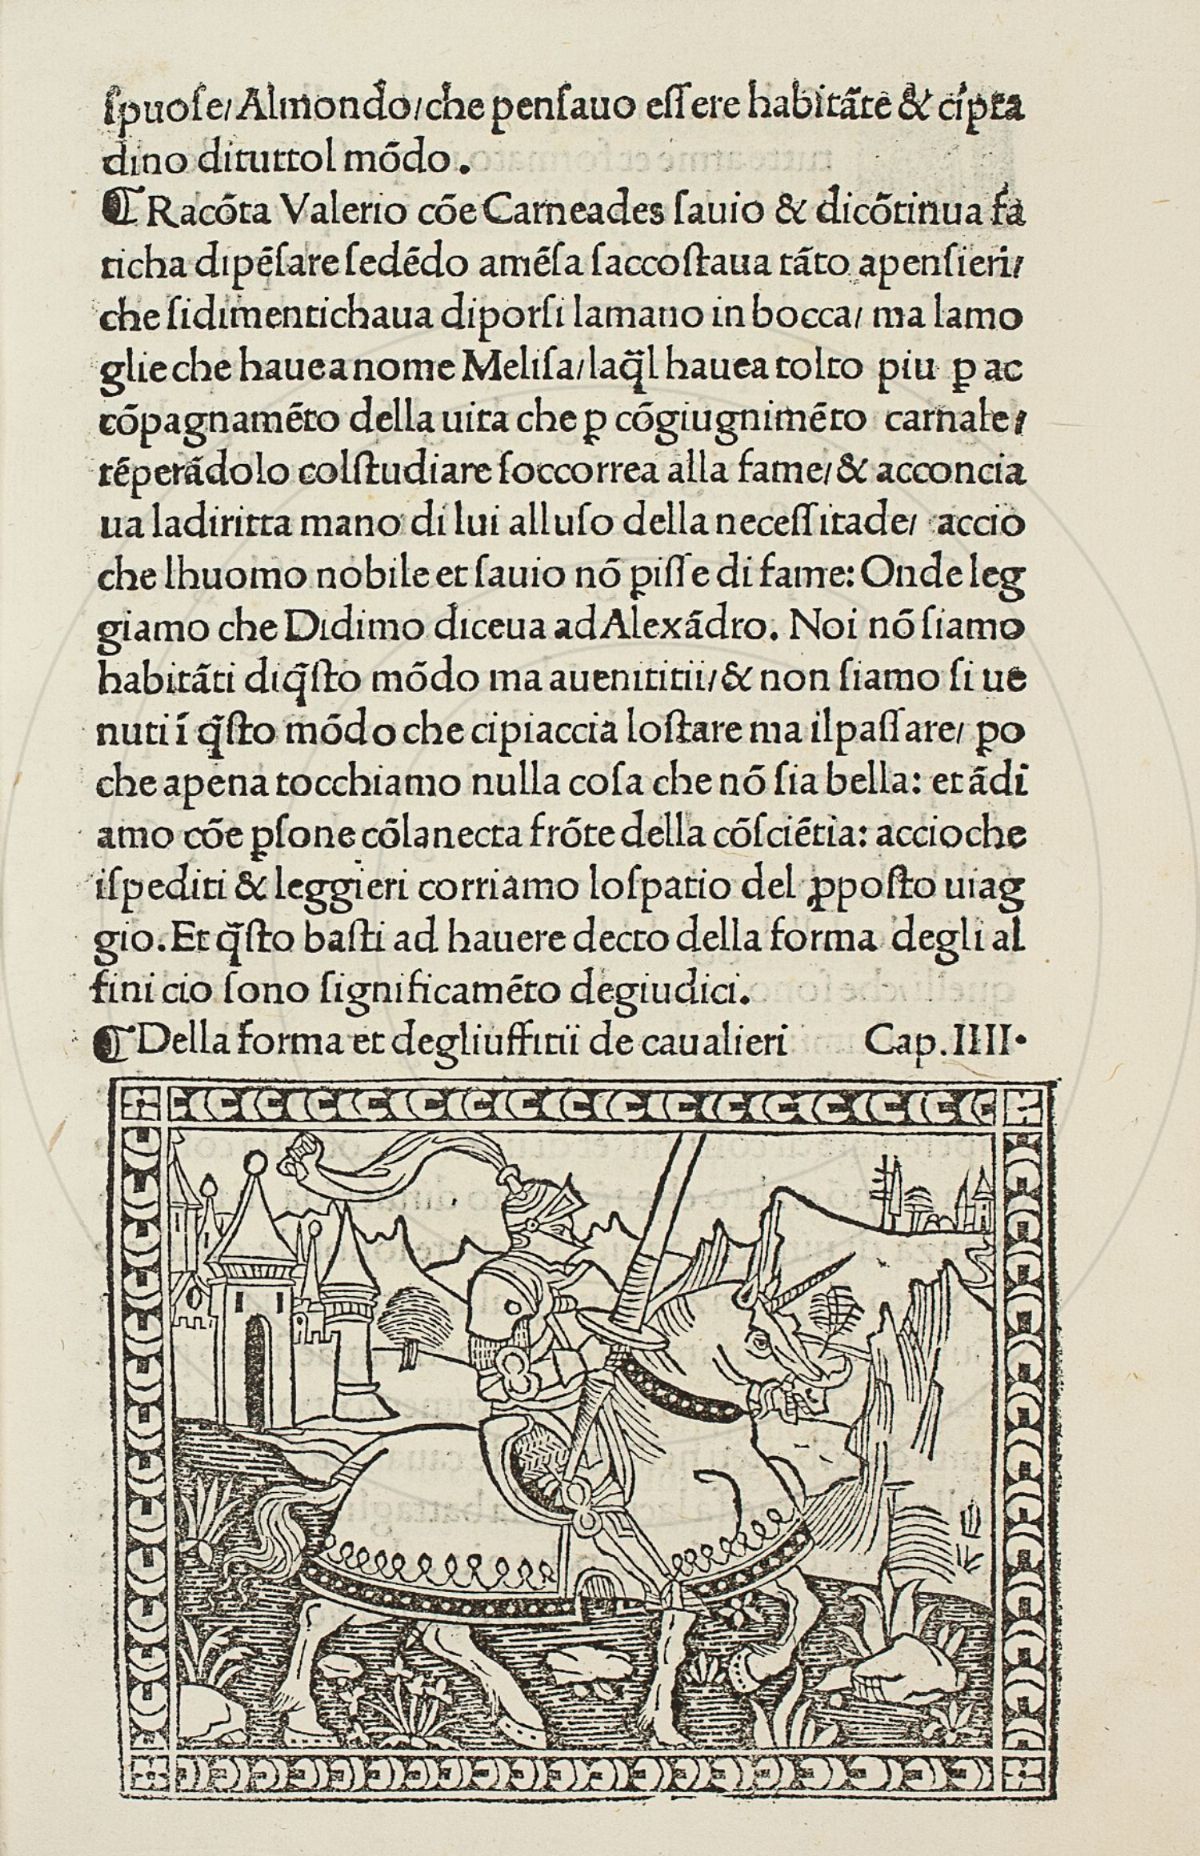 ſpuoſe/Almondo/che penſauo eſſere habitãte & cípta
dino dituttol mõdo.
¶ Racõta Valerio cõe Carneades ſauio & dicõtinua fa
ticha dipẽſare ſedẽdo amẽſa ſaccoſtaua tãto apenſieri/
che ſidimentichaua diporſi lamano in bocca/ ma lamo
glie che hauea nome Meliſa/laq̃l hauea tolto piu ꝑ ac
cõpagnamẽto della uita che ꝑ cõgiugnimẽto carnale/
tẽperãdolo colſtudiare ſoccorrea alla fame/& acconcia
ua ladiritta mano di lui alluſo della neceſſitade/ accio
che lhuomo nobile et ſauio nõ ꝑiſſe di fame: Onde leg
giamo che Didimo diceua ad Alexãdro. Noi nõ ſiamo
habitãti diq̃ſto mõdo ma auenititii/& non ſiamo ſi ue
nuti ĩ q̃ſto mõdo che cipiaccia loſtare ma ilpaſſare/ ꝑo
che apena tocchiamo nulla coſa che nõ ſia bella: et ãdi
amo cõe ꝑſone cõlanecta frõte della cõſciẽtia: accioche
iſpediti & leggieri corriamo loſpatio del ꝓpoſto uiag
gio. Et q̃ſto baſti ad hauere decto della forma degli al
fini cio ſono ſignificamẽto degiudici.
¶ Della forma et degliuffitii de caualieri Cap. IIII.